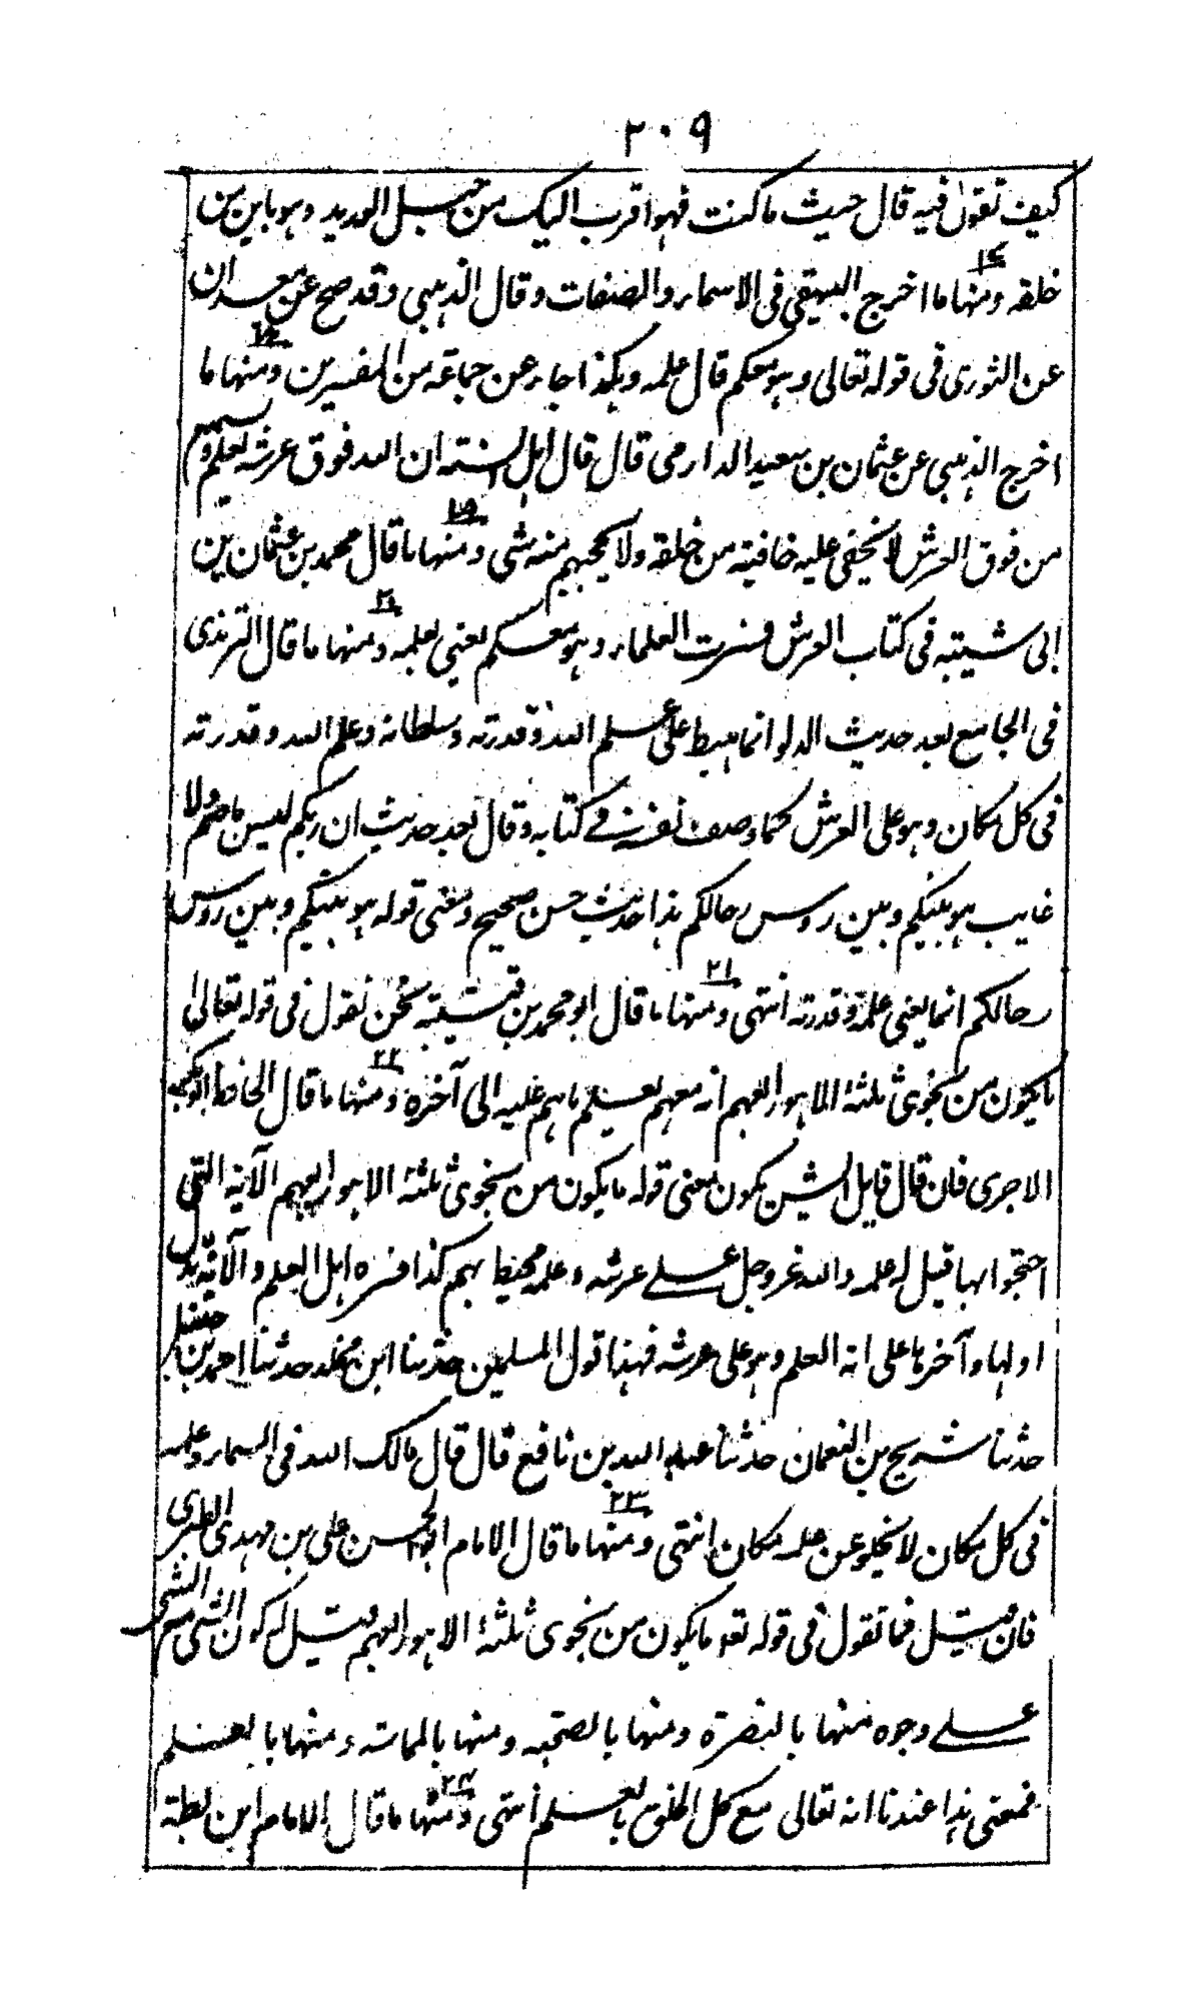 ۲۰۹
کیف تقول فیه قال حیث ما کنت فهو اقرب الیک من حبل الورید وهو باین من
خلقه ومنها ما اخرج البیهقی فی الاسماء والصفات وقال الذهبی وقد صح عن معدان
۱۷
عن الثوری فی قوله تعالی وهو معکم قال علمه وهکذا جاء عن جماعة من المفسرین ومنها ما
۱۸
اخرج الذهبی عن عثمان بن سعید الدارمی قال قال اهل السنة ان الله فوق عرشه یعلم ویسمع
من فوق العرش لا یخفی علیه خافیة من خلقه ولا یحجبهم منه شی ومنها ما قال محمد بن عثمان بن
۱۹
ابی شیبة فی کتاب العرش فسرت العلماء وهو معکم یعنی بعلمه ومنها ما قال الترمذی
۲۰
فی الجامع بعد حدیث الدلو انما هبط علی علم الله وقدرته وسلطانه وعلم الله وقدرته
فی کل مکان وهو علی العرش کما وصف نفسه فی کتابه وقال بعد حدیث ان ربکم لیس باصم ولا
غایب هو بینکم وبین روس رحالکم هذا حدیث حسن صحیح ومعنی قوله هو بینکم وبین روس
رحالکم انما یعنی علمه وقدرته انتهی ومنها ما قال ابو محمد بن قتیبة نحن نقول فی قوله تعالی
۲۱
ما یکون من نجوی ثلثة الا هو رابعهم انه معهم یعلم ما هم علیه الی آخره ومنها ما قال الحافظ ابوبکر
۲۲
الاجری فان قال قایل ایش یکون معنی قوله ما یکون من نجوی ثلثة الا هو رابعهم الآیة التی
احتجوا بها قیل له علمه والله عز وجل علی عرشه وعلمه محیط بهم کذا فسره اهل العلم والآیة یدل
اولها وآخرها علی انه العلم وهو علی عرشه فهذا قول المسلمین حدثنا ابن مخلد حدثنا احمد بن حنبل
حدثنا شریح بن النعمان حدثنا عبد الله بن نافع قال قال مالک الله فی السماء وعلمه
فی کل مکان لا یخلو عن علمه مکان انتهی ومنها ما قال الامام ابو الحسن علی بن مهدی الطبری
۲۳
فان قیل فما تقول فی قوله تعه ما یکون من نجوی ثلثة الا هو رابعهم قیل له کون الشی مع الشی
علی وجوه منها بالنصرة ومنها بالصحبة ومنها بالمماسة ومنها بالعلم
فمعنی هذا عندنا انه تعالی مع کل الخلق بالعلم انتهی ومنها ما قال الامام ابن بطة
۲۴